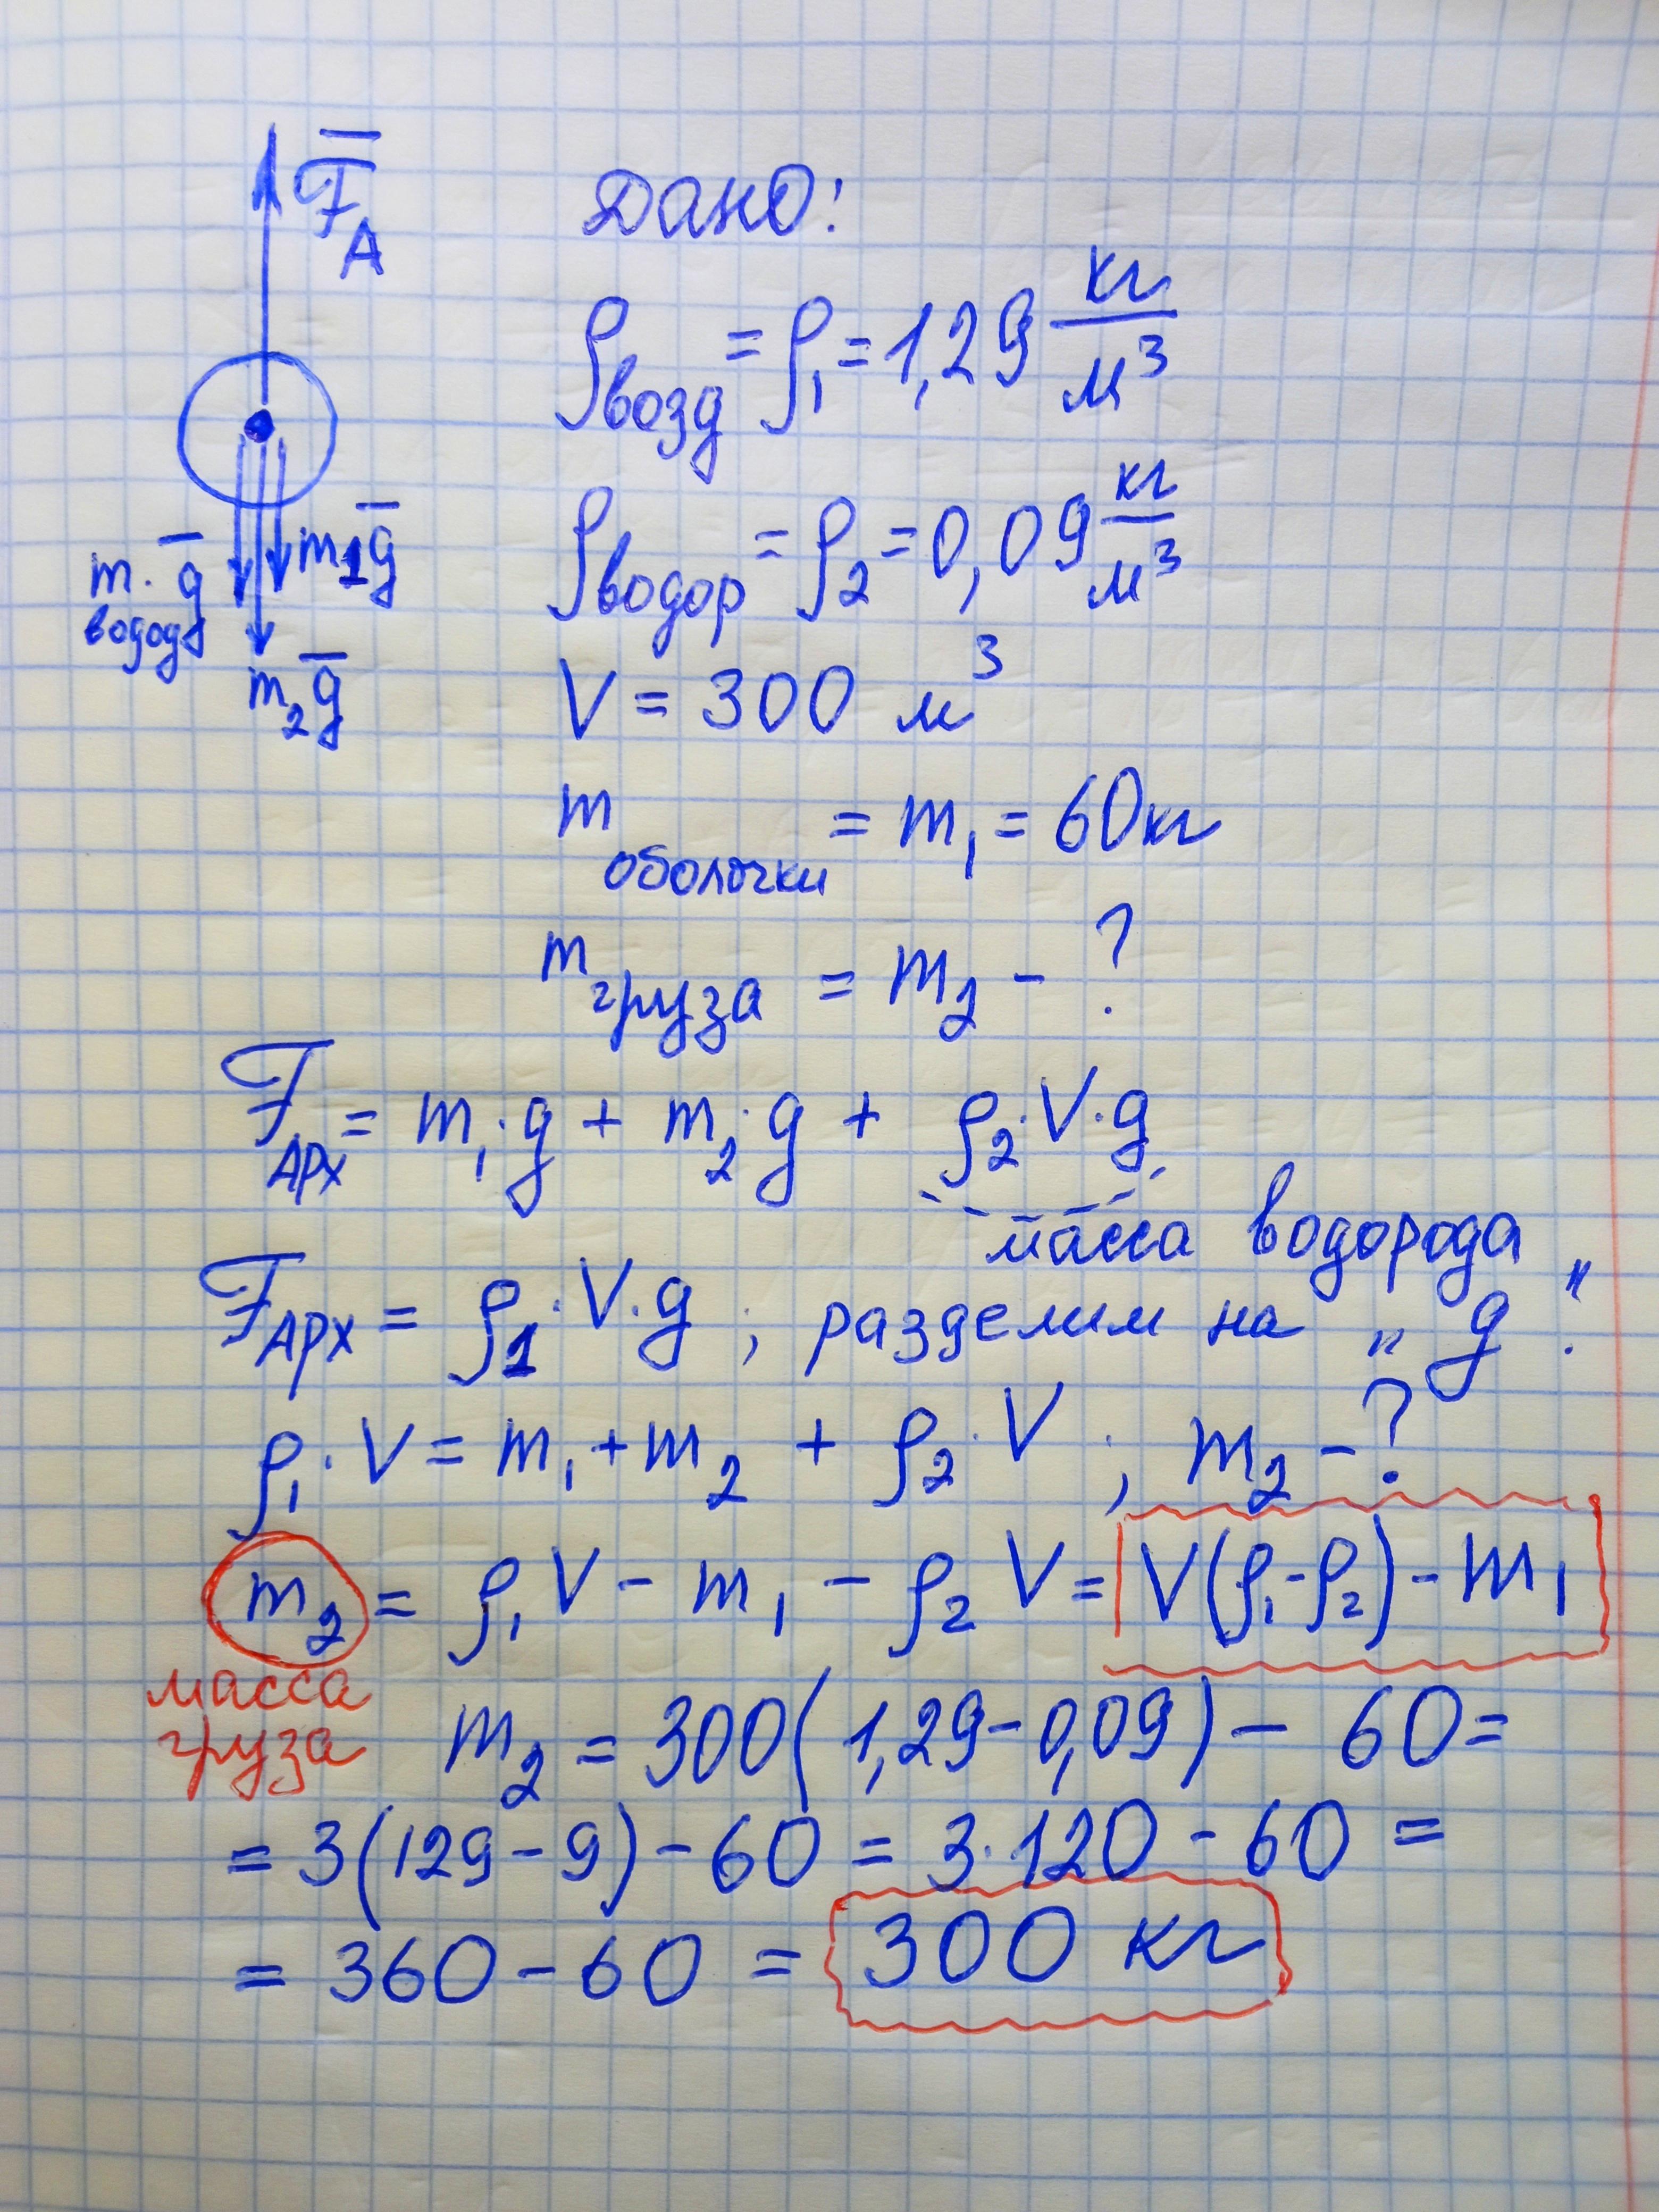 F̅
A
m₁g̅
m·g̅
водор
m₂g̅
Дано:
ρвозд = ρ₁ = 1,29 кг/м³
ρводор = ρ₂ = 0,09 кг/м³
V = 300 м³
m оболочки = m₁ = 60 кг
m груза = m₂ - ?
F АРХ = m₁·g + m₂·g + ρ₂·V·g
масса водорода
F АРХ = ρ₁·V·g ; разделим на „g“.
ρ₁·V = m₁ + m₂ + ρ₂·V ; m₂ - ?
m₂ = ρ₁V - m₁ - ρ₂V = V(ρ₁-ρ₂) - m₁
масса
груза
m₂ = 300(1,29-0,09) - 60 =
= 3(129-9) - 60 = 3·120 - 60 =
= 360 - 60 = 300 кг